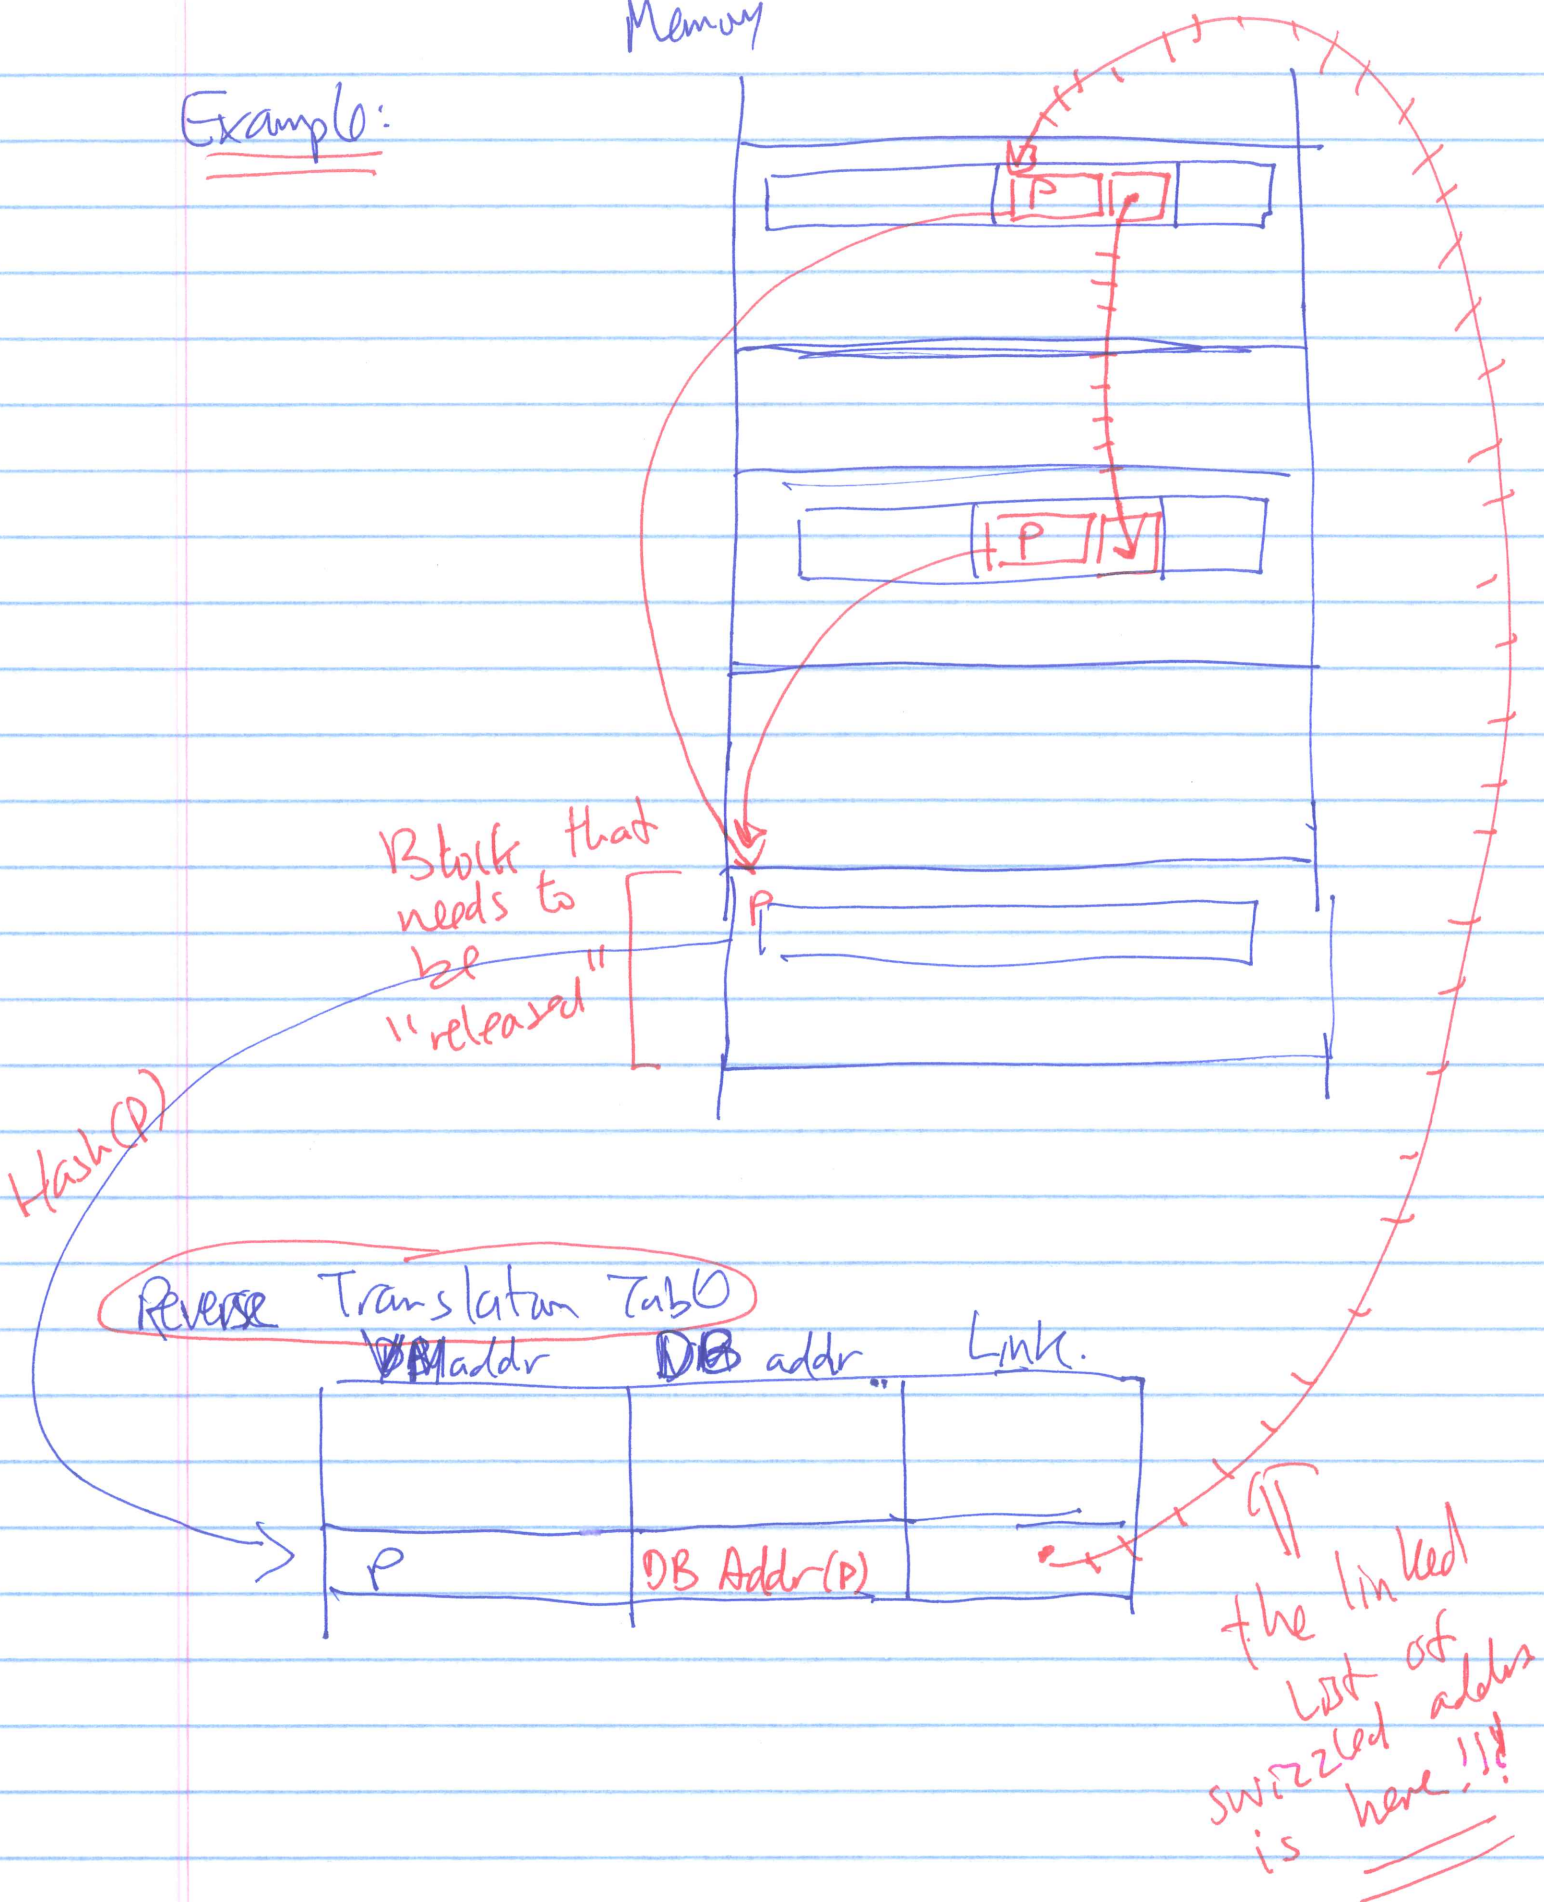 Memory
Example:
P
P
Block that
needs to
be
"released"
P
Hash(P)
Reverse Translation Table
VM addr DB addr Link.
P DB Addr(P)
the linked
list of
swizzled address
is here!!!